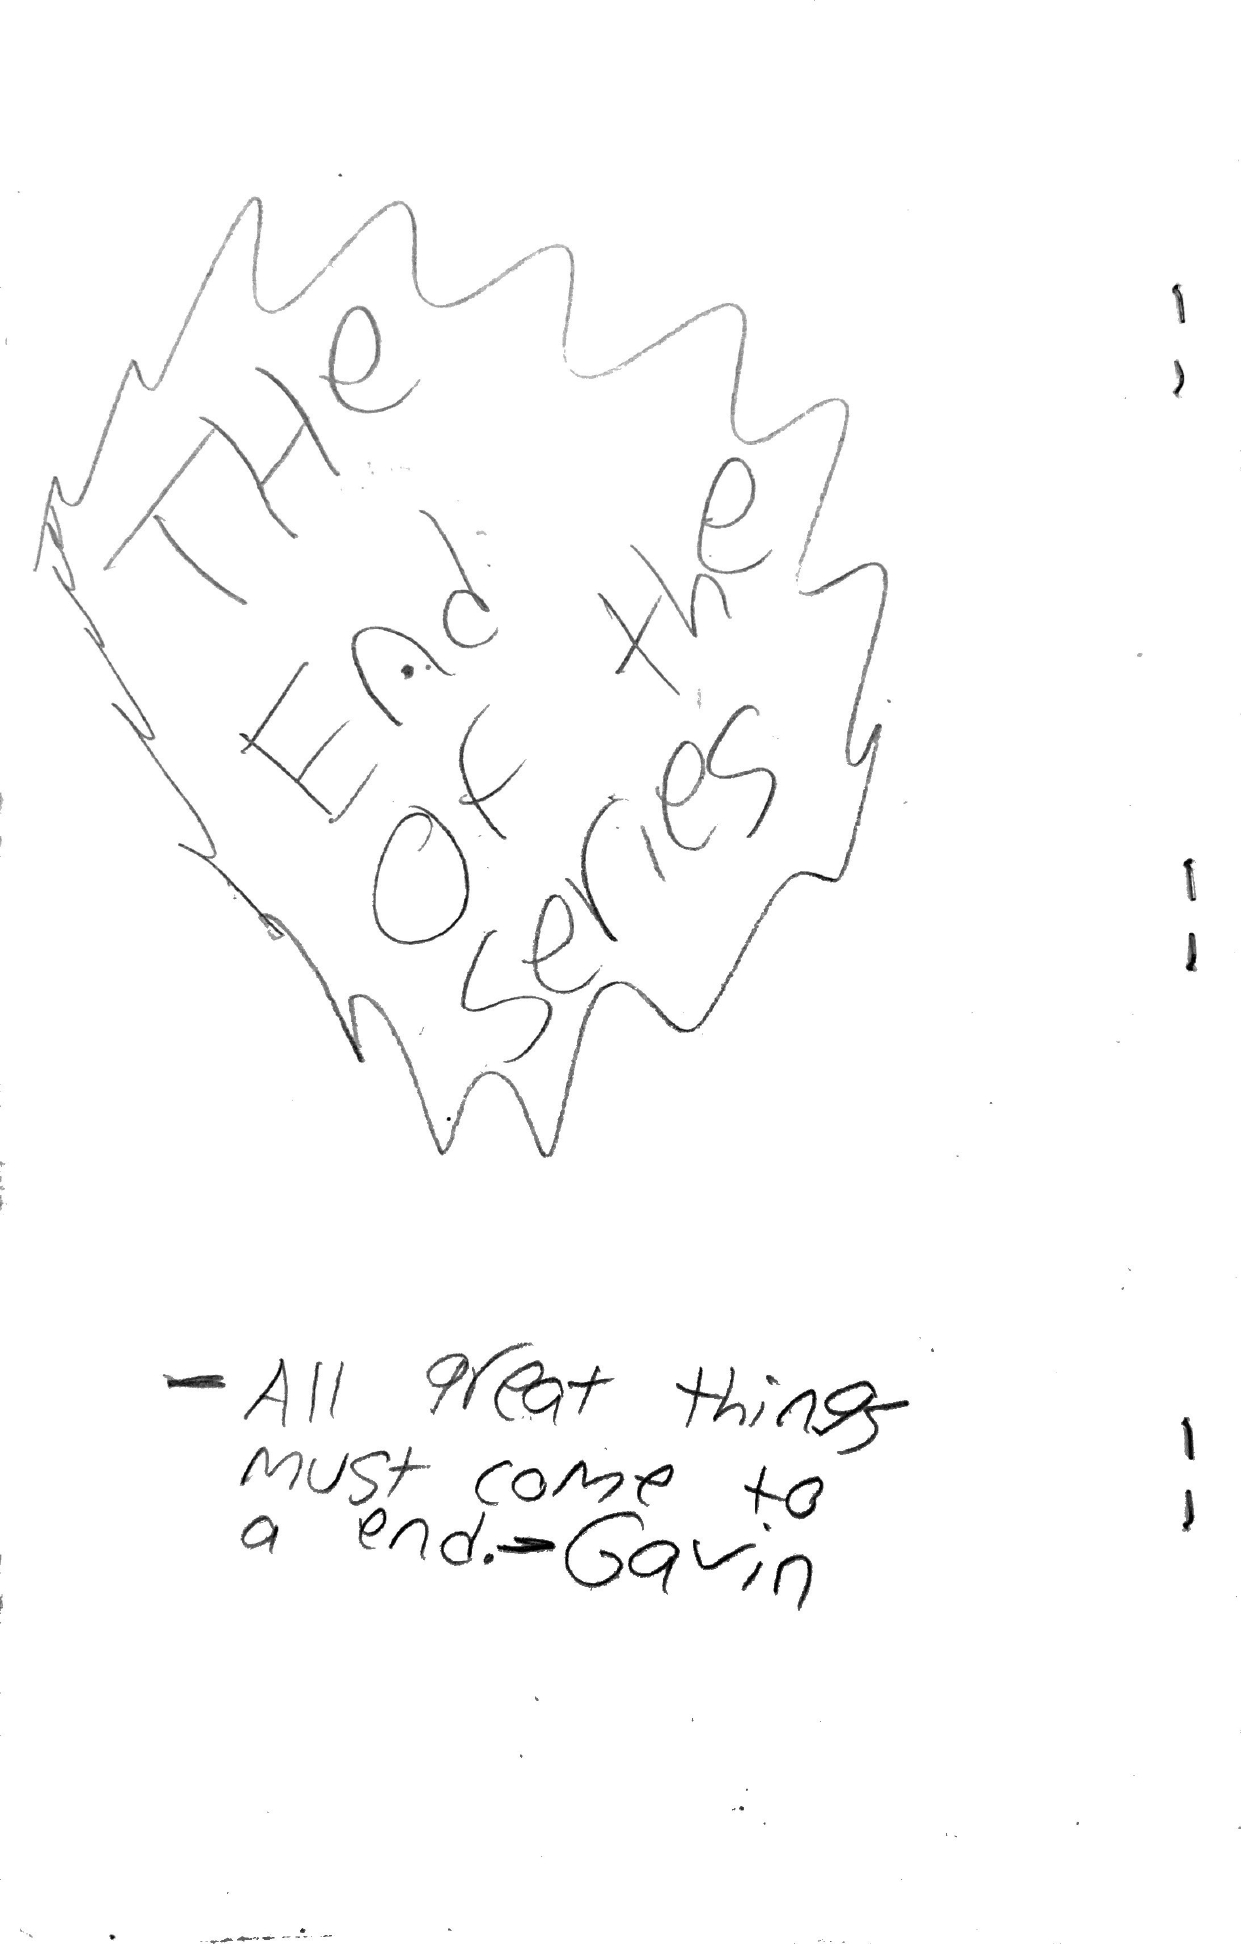 THe
End
Of the
series
- All great things
must come to
a end. - Gavin